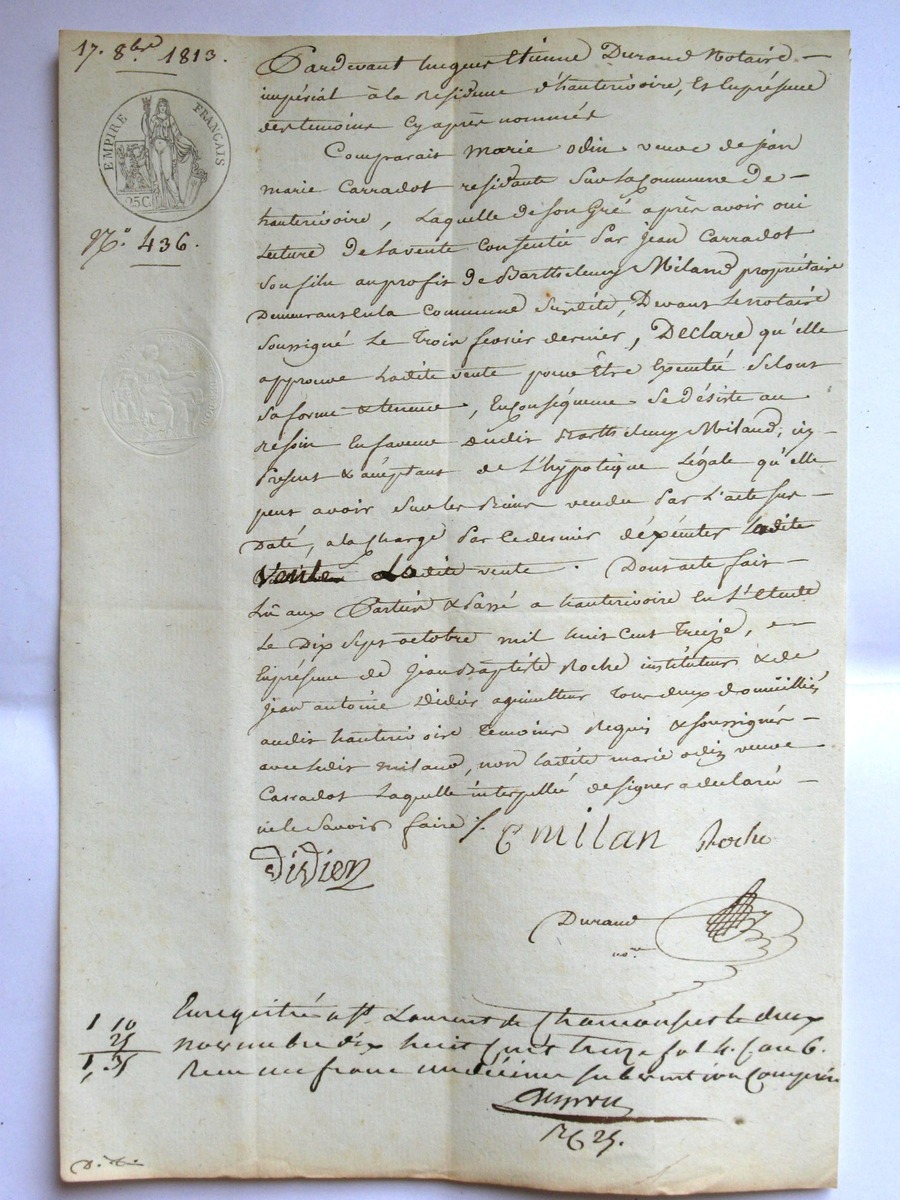 17. 8bre 1813.
EMPIRE FRANÇAIS
25 C.
No. 436.
Pardevant hugues Etienne Durand Notaire
impérial à la residence d'hauterivoire, Et En présence
des temoins Cy après nommés
Comparait marie odin veuve de jean
marie Carradot residante Sur la Commune De
hauterivoire, Laquelle de Son Gré après avoir oui
Lecture De la vente Consentie Par jean Carradot
Son fils au profit de Barthelemy Miland propriétaire
Demeurant En la Commune Susdite, Devant Le notaire
Soussigné Le Trois fevrier dernier, Declare qu'elle
approuve Ladite vente pour Être Executée Selont
Sa forme & teneur, En Conséquence Se désiste au
résoin En faveur dudit Barthelemy Miland, icy
Present & acceptant de L'hypotèque Légale qu'elle
peut avoir Sur les Biens vendu Par L'acte Sus
Daté, a la Charge Par Ce dernier d'éxécuter Ladite
vente Ladite vente. Dont acte fait
Lû aux Parties & Passé a hauterivoire En L'Etude
Le Dix Sept octobre mil huit Cent Treize,
En présence de Jean Baptiste Roche instituteur & de
Jean antoine Didier agriculteur Tous deux domicilliés
audit hauterivoire Temoins Requis & Soussignés
avec Ledit miland, non Ladite marie odin veuve
Carradot Laquelle interpellée de signer a declaré
ne le Savoir faire /.
E milan Roche
DiDier
Durand
nore
Enregistré a St. Laurent de Chamousset le deux
novembre dix huit Cent treize fol 4. C an 6.
Recu un franc un décime subvention Comprise
1 10
25
1, 35
R 6 25.